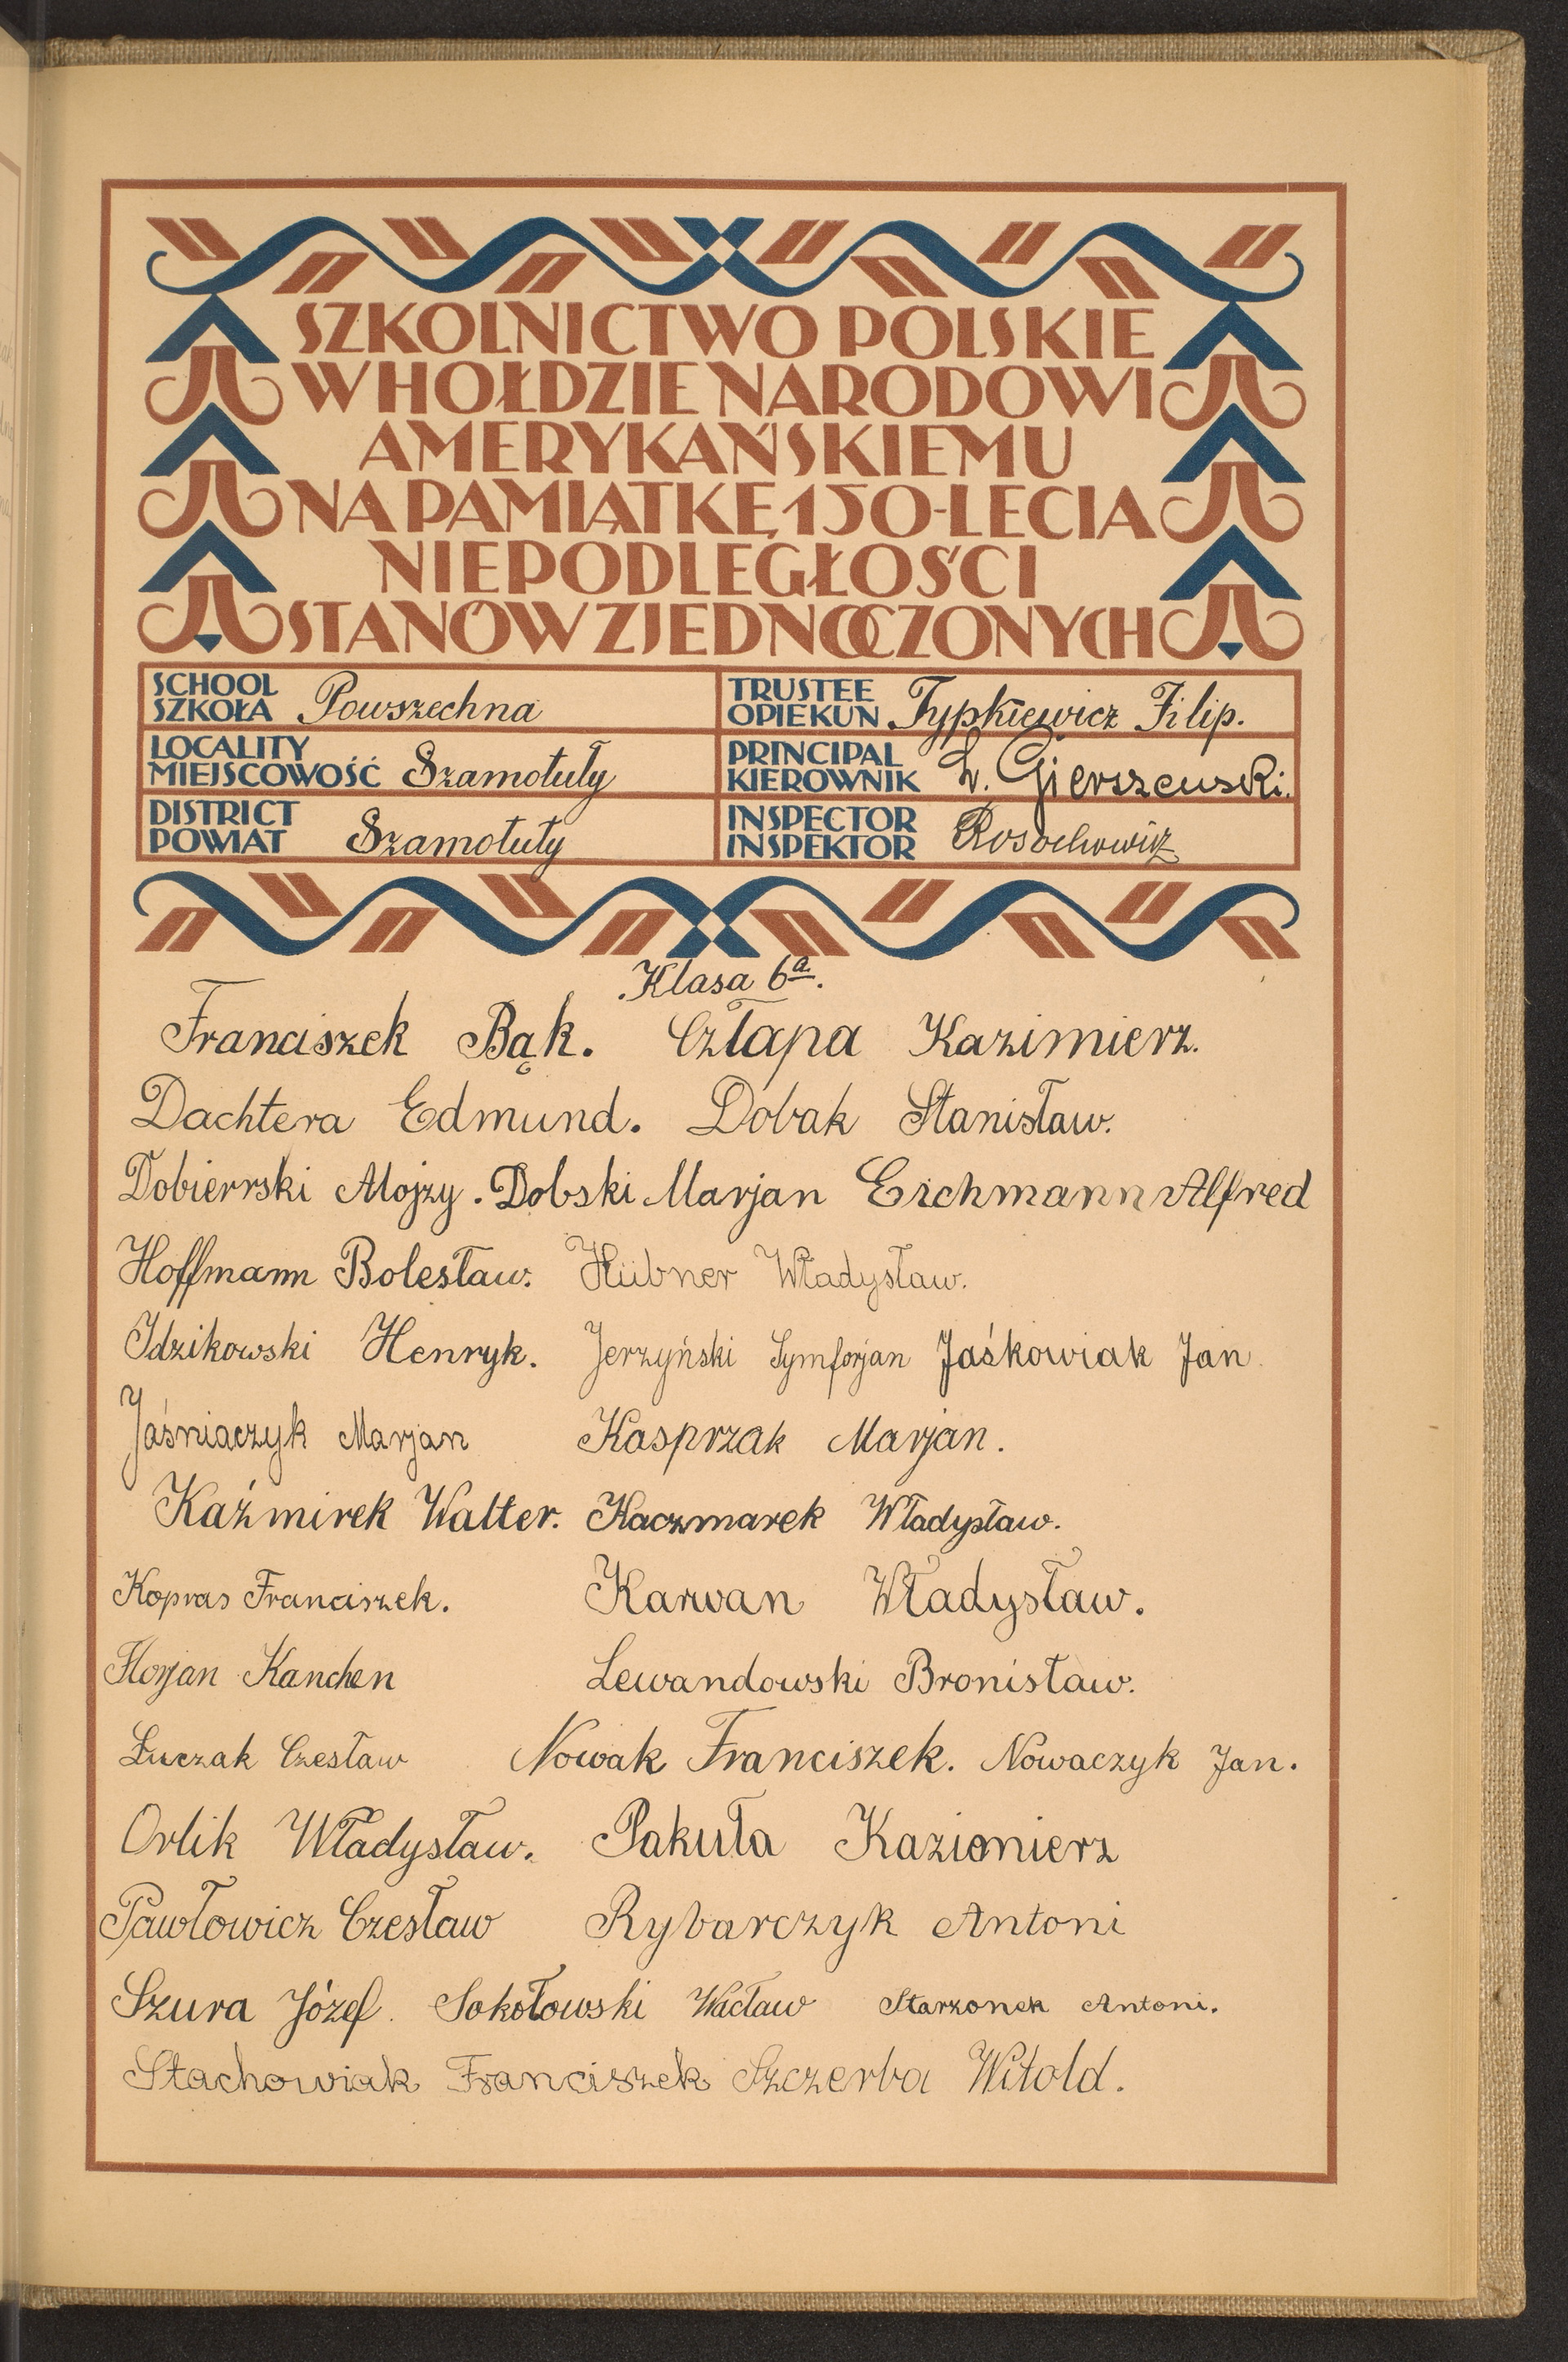 SZKOLNICTWO POLSKIE
W HOŁDZIE NARODOWI
AMERYKAŃSKIEMU
NA PAMIĄTKĘ 150-LECIA
NIEPODLEGŁOŚCI
STANÓW ZJEDNOCZONYCH
SCHOOL
SZKOŁA Powszechna
TRUSTEE
OPIEKUN Typkiewicz Filip.
LOCALITY
MIEJSCOWOŚĆ Szamotuły
PRINCIPAL
KIEROWNIK L. Gierszewski.
DISTRICT
POWIAT Szamotuły
INSPECTOR
INSPEKTOR Rosochowicz
Klasa 6a.
Franciszek Bąk. Człapa Kazimierz.
Dachtera Edmund. Dobak Stanisław.
Dobierrski Alojzy. Dobski Marjan Eichmann Alfred
Hoffmann Bolesław. Hübner Władysław.
Idzikowski Henryk. Jerzyński Symforjan Jaśkowiak Jan.
Jaśniaczyk Marjan Kasprzak Marjan.
Kaźmirek Walter. Kaczmarek Władysław.
Kopras Franciszek. Karwan Władysław.
Florjan Kanchen Lewandowski Bronisław.
Łuczak Czesław Nowak Franciszek. Nowaczyk Jan.
Orlik Władysław. Pakuła Kazimierz
Pawłowicz Czesław Rybarczyk Antoni
Szura Józef. Sokołowski Wacław Starzonek Antoni.
Stachowiak Franciszek Szczerba Witold.